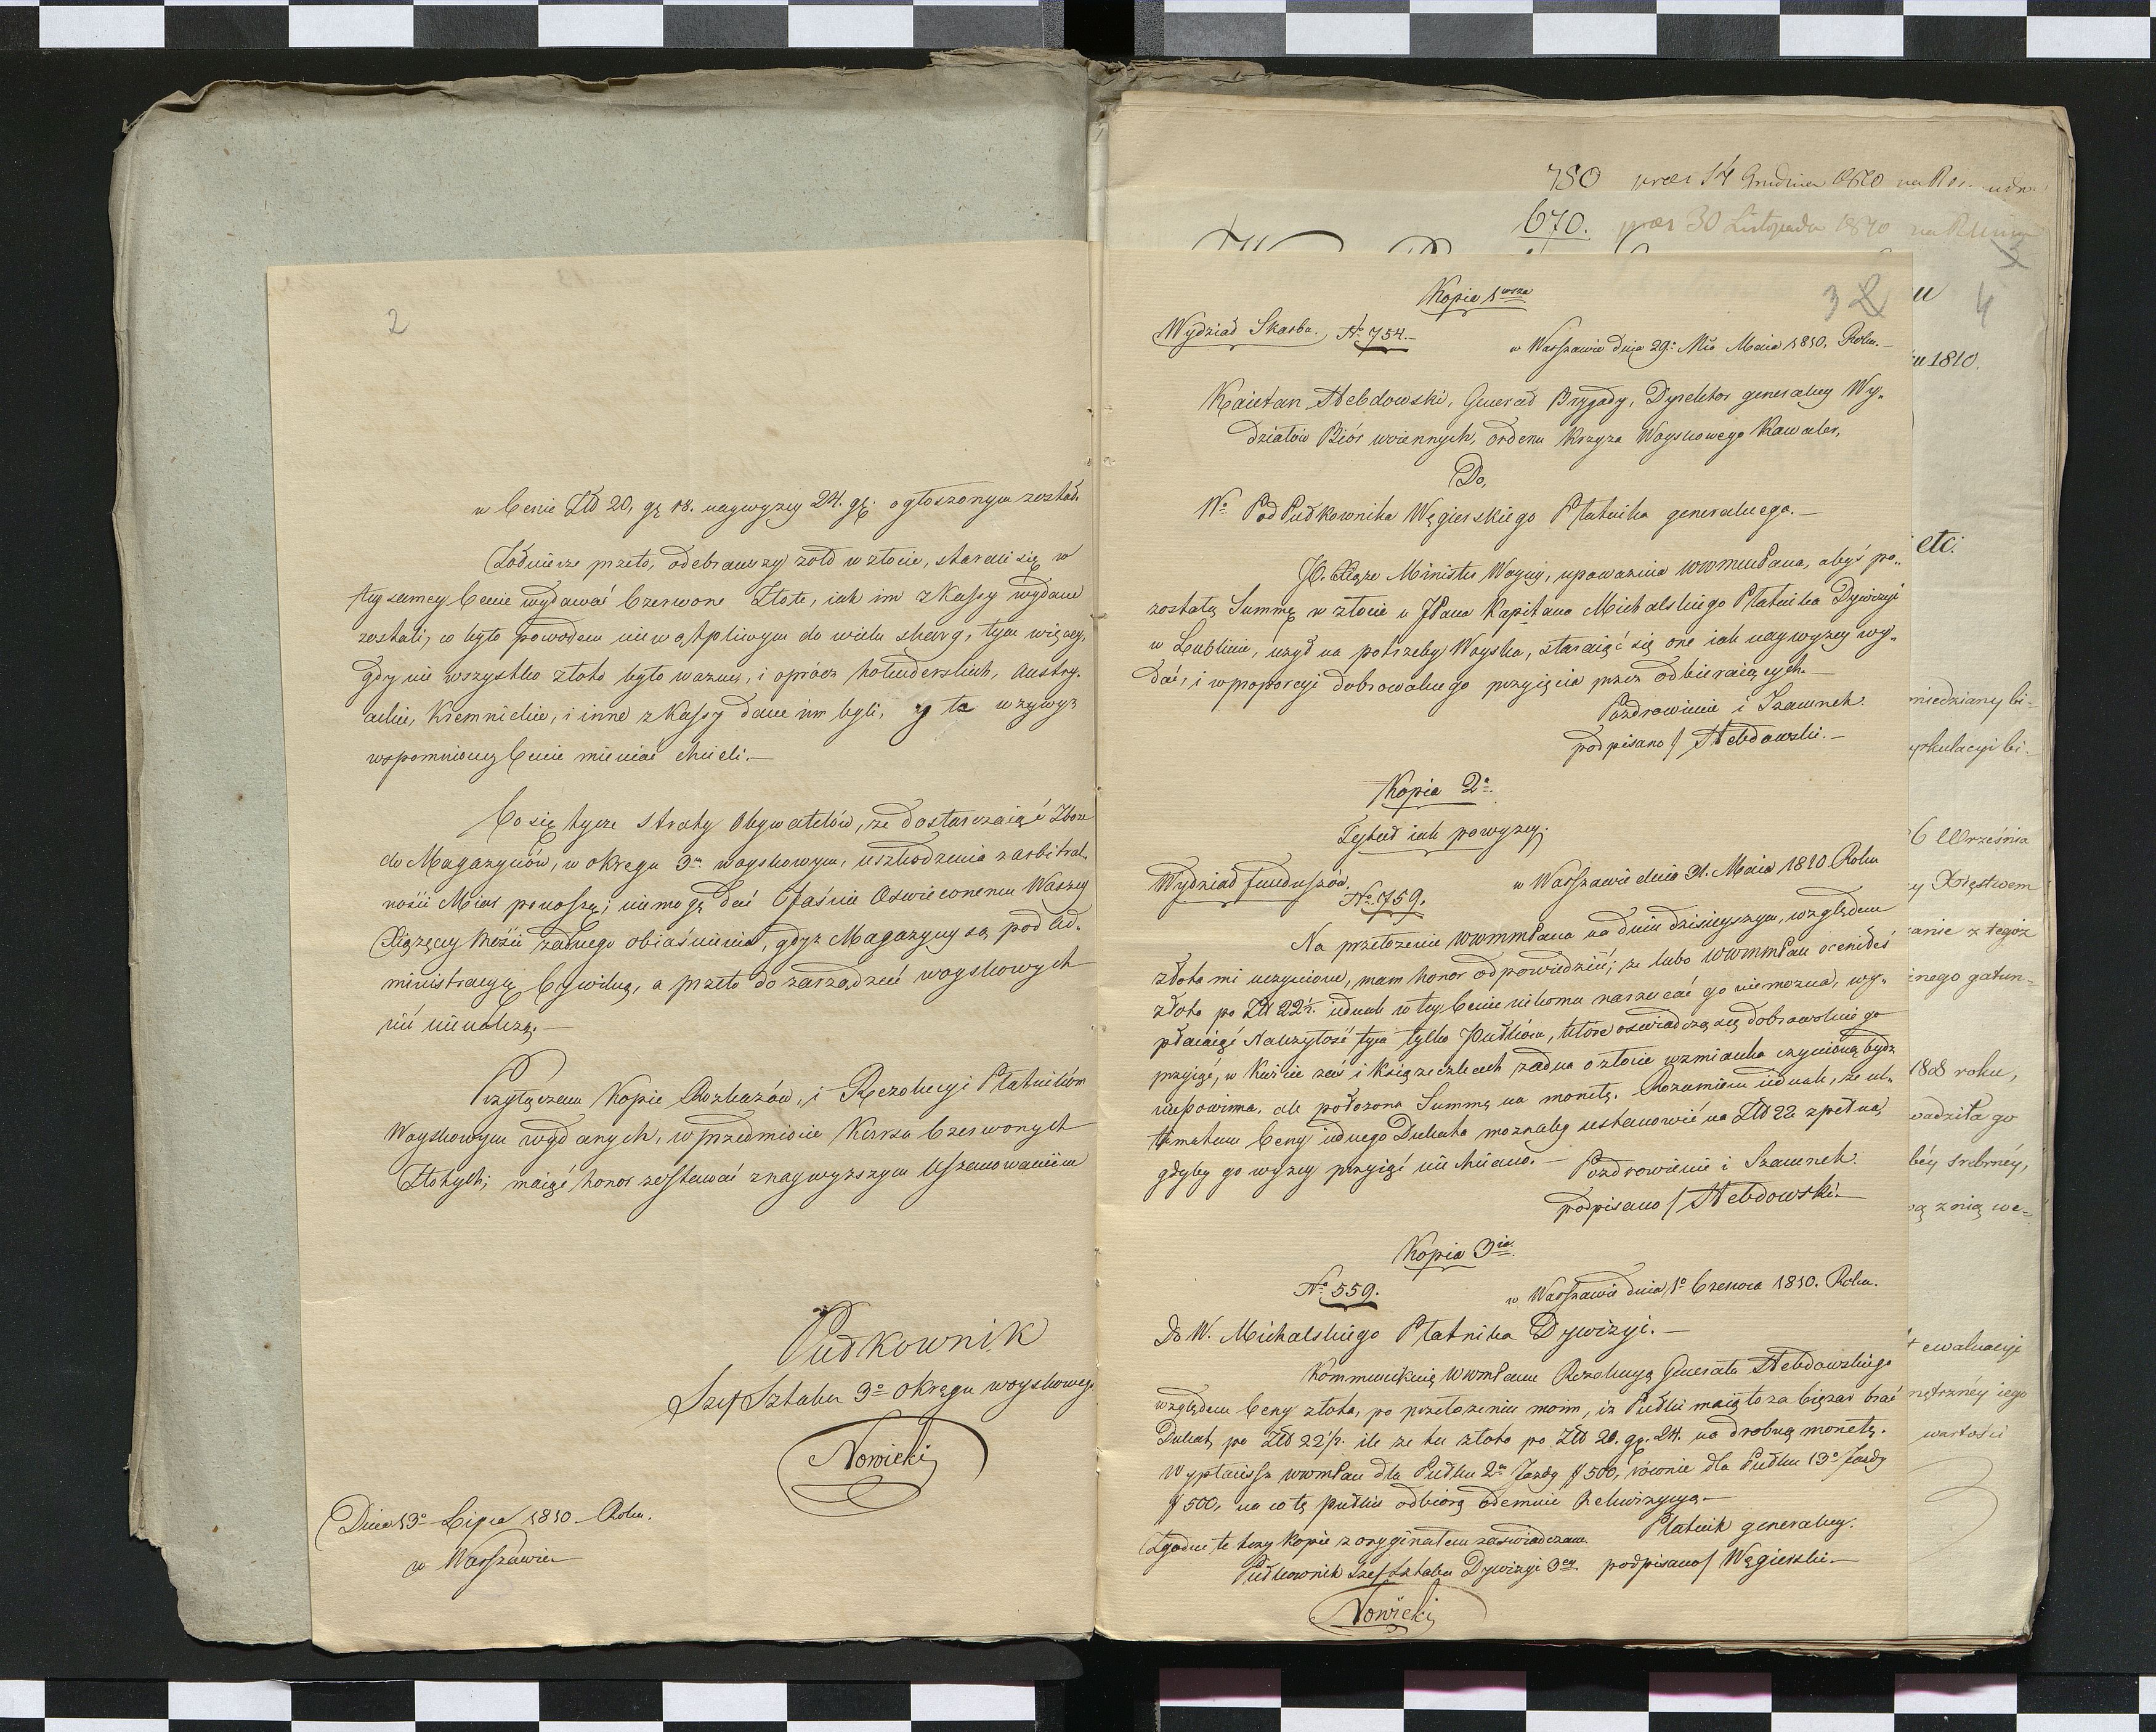 2
w Cenie Złł 20, gę 18. naywyzey 24. gę. ogłoszonym został.
Żołnierze przeto, odebrawszy zołd w złocie, starali się w
teysamey Cenie wydawać Czerwone Złote, iak im z Kassy wydane
zostali, co było powodem niewątpliwym do wielu skarg, tym więcey,
gdy nie wszystko złoto było ważne, i oprócz hollenderskich, austry-
ackie, Kremnickie, i inne z Kassy dane im byli, y te w zwyż
wspomnioney Cenie mieniać chcieli.—
Co się tycze Straty Obywatelów, ze dostarczaiąc Zboze
do Magazynów, w okręgu 3m woyskowym, uszkodzenia z arbitral-
ności Miar ponoszą; niemogę dać Jaśnie Oswieconemu Waszey
Xiążęcey Mości żadnego obiaśnienia, gdyz Magazyny są pod Ad-
ministracyą Cywilną, a przeto do zarządzeń woyskowych
nic nienależą.—
Przyłączam Kopie Rozkazów, i Rezolucyi Płatników
Woyskowym wydanych, w przedmiocie Kursu Czerwonych
Złotych; maiąć honor zostawać z naywyższym Uszanowaniem
Pułkownik
Szef Sztabu 3o okręgu woyskowego
Nowicki
Dnia 13o Lipca 1810 Roku.
w Warszawie
750 prez 14 Grudnia 1810 na
670. prez 30 Listopada 1810 na
3 2
4
Kopia 1wsza
Wydział Skarbu. No 754.—
w Warszawie dnia 29o Mca Maia 1810, Roku.—
Kaietan Hebdowski, Generał Brygady, Dyrektor generalny Wy-
działów Biór woiennych, orderu Krzyza Woyskowego Kawaler,
Do,
Wo PodPułkownika Węgierskiego Płatnika generalnego.—
JO. Xiąze Minister Woyny, upowaznia WWMMPana, abyś po-
zostałą Summę w złocie u JPana Kapitana Michalskiego Płatnika Dywizyi
w Lublinie, użył na potrzeby Woyska, staraiąć się one iak naywyzey wy-
dać, i w poporcyi dobrowolnego przyięcia przez odbieraiących.—
Pozdrowienie i Szacunek.
podpisano/ Hebdowski.—
Kopia 2a.
Tytuł iak powyzey.
Wydział funduszów.
No 759.
w Warszawie dnia 31. Maia 1810 Roku
Na przełozenie WWMMPana na dniu dzisieyszym, względem
złota mi uczynione, mam honor odpowiedzić; ze lubo WWMMPan oceniłeś
złoto po Złł 22½. iednak w tey Cenie nikomu narzucać go niemozna, wy-
płaiąć Nalezytość tym tylko Pułkom, które oswiadczą się dobrowolnie go
przyiąć, w Kwicie zaś i książeczkach żadna o złocie wzmianka czyniona bydz
niepowinna, ale położona Summa na monetę. Rozumiem iednak, ze ul-
timatum Ceny iednego Dukata moznaby ustanowić na Złł 22 zpełna,
gdyby go wyzey przyiąć nie chciano.—
Pozdrowienie i Szacunek.
podpisano/ Hebdowski.—
Kopia 3ia.
No 559.
w Warszawie dnia 1o Czerwca 1810. Roku.
Do W. Michalskiego Płatnika Dywizyi.—
Kommunikuię WWMPanu Rezolucyą Generała Hebdowskiego
względem Ceny złota, po przełozeniu moim, iz Pułki maią to za ciężar brać
Dukaty po Złł 22½. ile ze tu złoto po Złł 20. gę. 24. na drobną monetę.
Wypłacisz WWMPan dla Pułku 2o Jazdy # 500, równie dla Pułku 13o Jazdy
# 500, na co tę pułki odbiorą odemnie Rekwizycyą.—
Płatnik generalny.
Zgodne te trzy kopie z oryginałem zaświadczam
podpisano/ Węgierski.—
Pułkownik Szef Sztabu Dywizyi 3ey
Nowicki
u 1810.
etc:
miedzianey bi-
yrkulacyi bi-
6 Września
y Xięstwem
anie z tegoz
nego gatun-
1808 roku,
wadziła go
béy srebrnéy,
ą z nią we-
ewaluacyi
nętrznéy iego
wartości